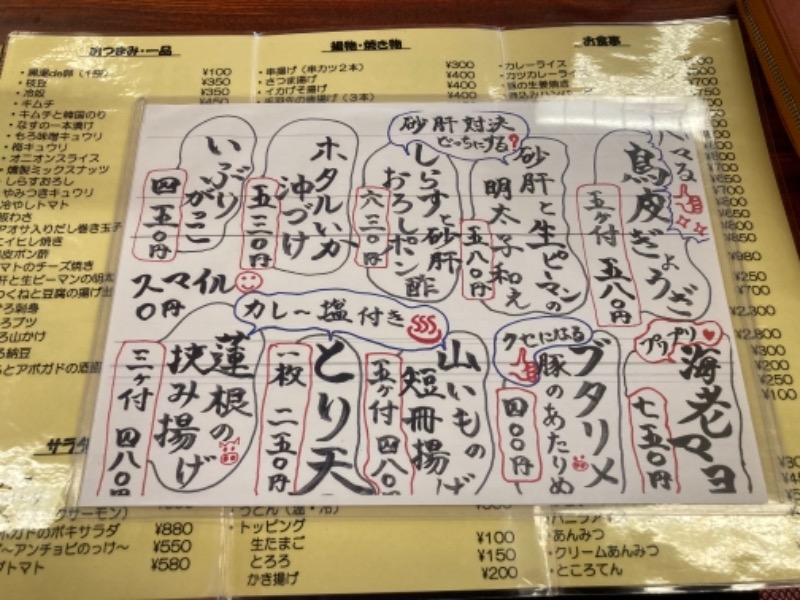 ハマる
鳥皮ぎょうざ
五ヶ付 五八〇円
砂肝対決
どっちにする?
砂肝と生ピーマンの
明太子和え
五八〇円
しらすと砂肝
おろしポン酢
六三〇円
ホタルいか
沖づけ
五三〇円
いぶり
がっこ
四五〇円
スマイル
０円
プリプリ
海老マヨ
七五〇円
クセになる
ブタリメ
豚のあたりめ
四〇〇円
カレー塩付き
山いもの
短冊揚げ
五ヶ付 四八〇円
とり天
一枚 二五〇円
蓮根の
挟み揚げ
三ヶ付 四八〇円
おつまみ・一品
¥100
・枝豆 ¥350
・冷奴 ¥350
・キムチ ¥450
・キムチと韓国のり
・なすの一本漬け
・もろ味噌キュウリ
・梅キュウリ
・オニオンスライス
・燻製ミックスナッツ
・しらすおろし
・やみつきキュウリ
冷やしトマト
板わさ
アオサ入りだし巻き玉子
エイヒレ焼き
鳥皮ポン酢
トマトのチーズ焼き
砂肝と生ピーマンの明太
つくねと豆腐の揚げ出
まぐろ刺身
まぐろブツ
まぐろ山かけ
まぐろ納豆
まぐろとアボガドの酒盗
サラダ
サーモン）
アボガドのポキサラダ ¥880
～アンチョビのっけ～ ¥550
トマト ¥580
揚物・焼き物
・串揚げ（串カツ２本） ¥300
・さつま揚げ ¥400
・イカげそ揚げ ¥400
・手羽先の唐揚げ（３本） ¥400
・うどん（温・冷）
・トッピング
生たまご ¥100
とろろ ¥150
かき揚げ ¥200
お食事
・カレーライス
・カツカレーライス
・豚の生姜焼き
・煮込みハンバーグ
¥980
¥250
¥2,800
¥300
¥200
¥250
¥100
・バニラアイス
・あんみつ
・クリームあんみつ
・ところてん